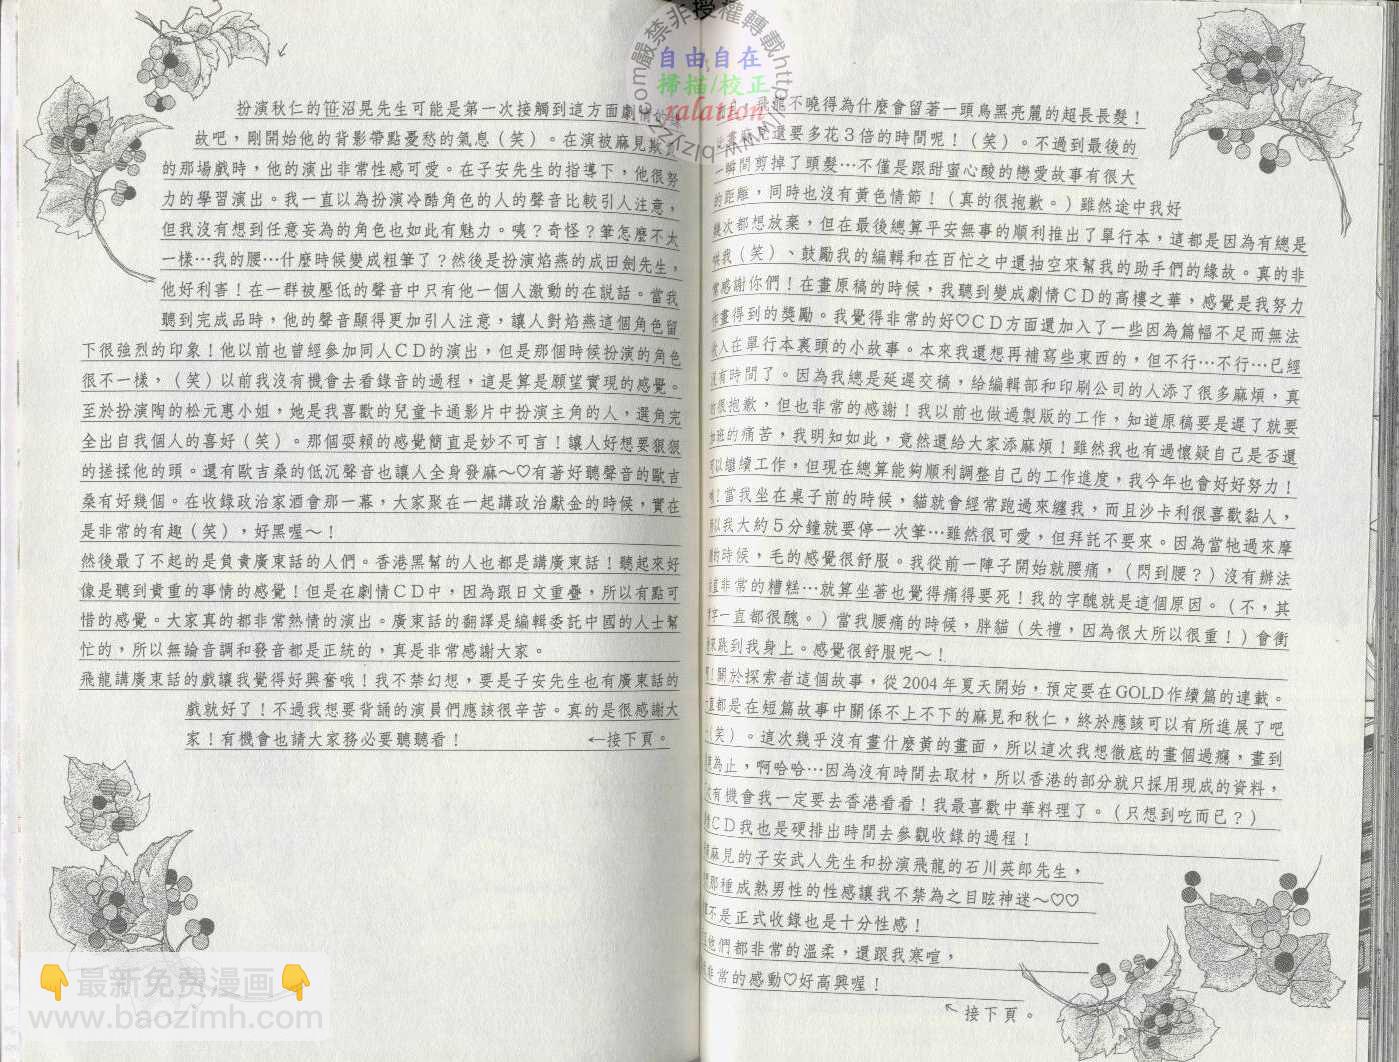 飛龍不曉得為什麼會留著一頭烏黑亮麗的超長長髮！
還要多花3倍的時間呢！（笑）。不過到最後的
一瞬間剪掉了頭髮…不僅是跟甜蜜心酸的戀愛故事有很大
的距離，同時也沒有黃色情節！（真的很抱歉。）雖然途中我好
幾次都想放棄，但在最後總算平安無事的順利推出了單行本，這都是因為有總是
哄我（笑）、鼓勵我的編輯和在百忙之中還抽空來幫我的助手們的緣故。真的非
常感謝你們！在畫原稿的時候，我聽到變成劇情CD的高樓之華，感覺是我努力
作畫得到的獎勵。我覺得非常的好♡CD方面還加入了一些因為篇幅不足而無法
放入在單行本裏頭的小故事。本來我還想再補寫些東西的，但不行…不行…已經
沒有時間了。因為我總是延遲交稿，給編輯部和印刷公司的人添了很多麻煩，真
的很抱歉，但也非常的感謝！我以前也做過製版的工作，知道原稿要是遲了就要
加班的痛苦，我明知如此，竟然還給大家添麻煩！雖然我也有過懷疑自己是否還
可以繼續工作，但現在總算能夠順利調整自己的工作進度，我今年也會好好努力！
！當我坐在桌子前的時候，貓就會經常跑過來纏我，而且沙卡利很喜歡黏人，
所以我大約5分鐘就要停一次筆…雖然很可愛，但拜託不要來。因為當牠過來摩
的時候，毛的感覺很舒服。我從前一陣子開始就腰痛，（閃到腰？）沒有辦法
直非常的糟糕…就算坐著也覺得痛得要死！我的字醜就是這個原因。（不，其
字一直都很醜。）當我腰痛的時候，胖貓（失禮，因為很大所以很重！）會衝
來跳到我身上。感覺很舒服呢～！
！關於探索者這個故事，從2004年夏天開始，預定要在GOLD作續篇的連載。
直都是在短篇故事中關係不上不下的麻見和秋仁，終於應該可以有所進展了吧
（笑）。這次幾乎沒有畫什麼黃的畫面，所以這次我想徹底的畫個過癮，畫到
為止，啊哈哈…因為沒有時間去取材，所以香港的部分就只採用現成的資料，
有機會我一定要去香港看看！我最喜歡中華料理了。（只想到吃而已？）
CD我也是硬排出時間去參觀收錄的過程！
麻見的子安武人先生和扮演飛龍的石川英郎先生，
那種成熟男性的性感讓我不禁為之目眩神迷～♡♡
不是正式收錄也是十分性感！
他們都非常的溫柔，還跟我寒喧，
非常的感動♡好高興喔！
←接下頁。
扮演秋仁的笹沼晃先生可能是第一次接觸到這方面劇情的緣
故吧，剛開始他的背影帶點憂愁的氣息（笑）。在演被麻見欺負
的那場戲時，他的演出非常性感可愛。在子安先生的指導下，他很努
力的學習演出。我一直以為扮演冷酷角色的人的聲音比較引人注意，
但我沒有想到任意妄為的角色也如此有魅力。咦？奇怪？筆怎麼不太
一樣…我的腰…什麼時候變成粗筆了？然後是扮演焰燕的成田劍先生，
他好利害！在一群被壓低的聲音中只有他一個人激動的在說話。當我
聽到完成品時，他的聲音顯得更加引人注意，讓人對焰燕這個角色留
下很強烈的印象！他以前也曾經參加同人CD的演出，但是那個時候扮演的角色
很不一樣，（笑）以前我沒有機會去看錄音的過程，這是算是願望實現的感覺。
至於扮演陶的松元惠小姐，她是我喜歡的兒童卡通影片中扮演主角的人，選角完
全出自我個人的喜好（笑）。那個耍賴的感覺簡直是妙不可言！讓人好想要狠狠
的搓揉他的頭。還有歐吉桑的低沉聲音也讓人全身發麻～♡有著好聽聲音的歐吉
桑有好幾個。在收錄政治家酒會那一幕，大家聚在一起講政治獻金的時候，實在
是非常的有趣（笑），好黑喔～！
然後最了不起的是負責廣東話的人們。香港黑幫的人也都是講廣東話！聽起來好
像是聽到貴重的事情的感覺！但是在劇情CD中，因為跟日文重疊，所以有點可
惜的感覺。大家真的都非常熱情的演出。廣東話的翻譯是編輯委託中國的人士幫
忙的，所以無論音調和發音都是正統的，真是非常感謝大家。
飛龍講廣東話的戲讓我覺得好興奮哦！我不禁幻想，要是子安先生也有廣東話的
戲就好了！不過我想要背誦的演員們應該很辛苦。真的是很感謝大
家！有機會也請大家務必要聽聽看！
←接下頁。
嚴禁非授權轉載
自由自在
掃描/校正
ralation
最新免费漫画
www.baozimh.com